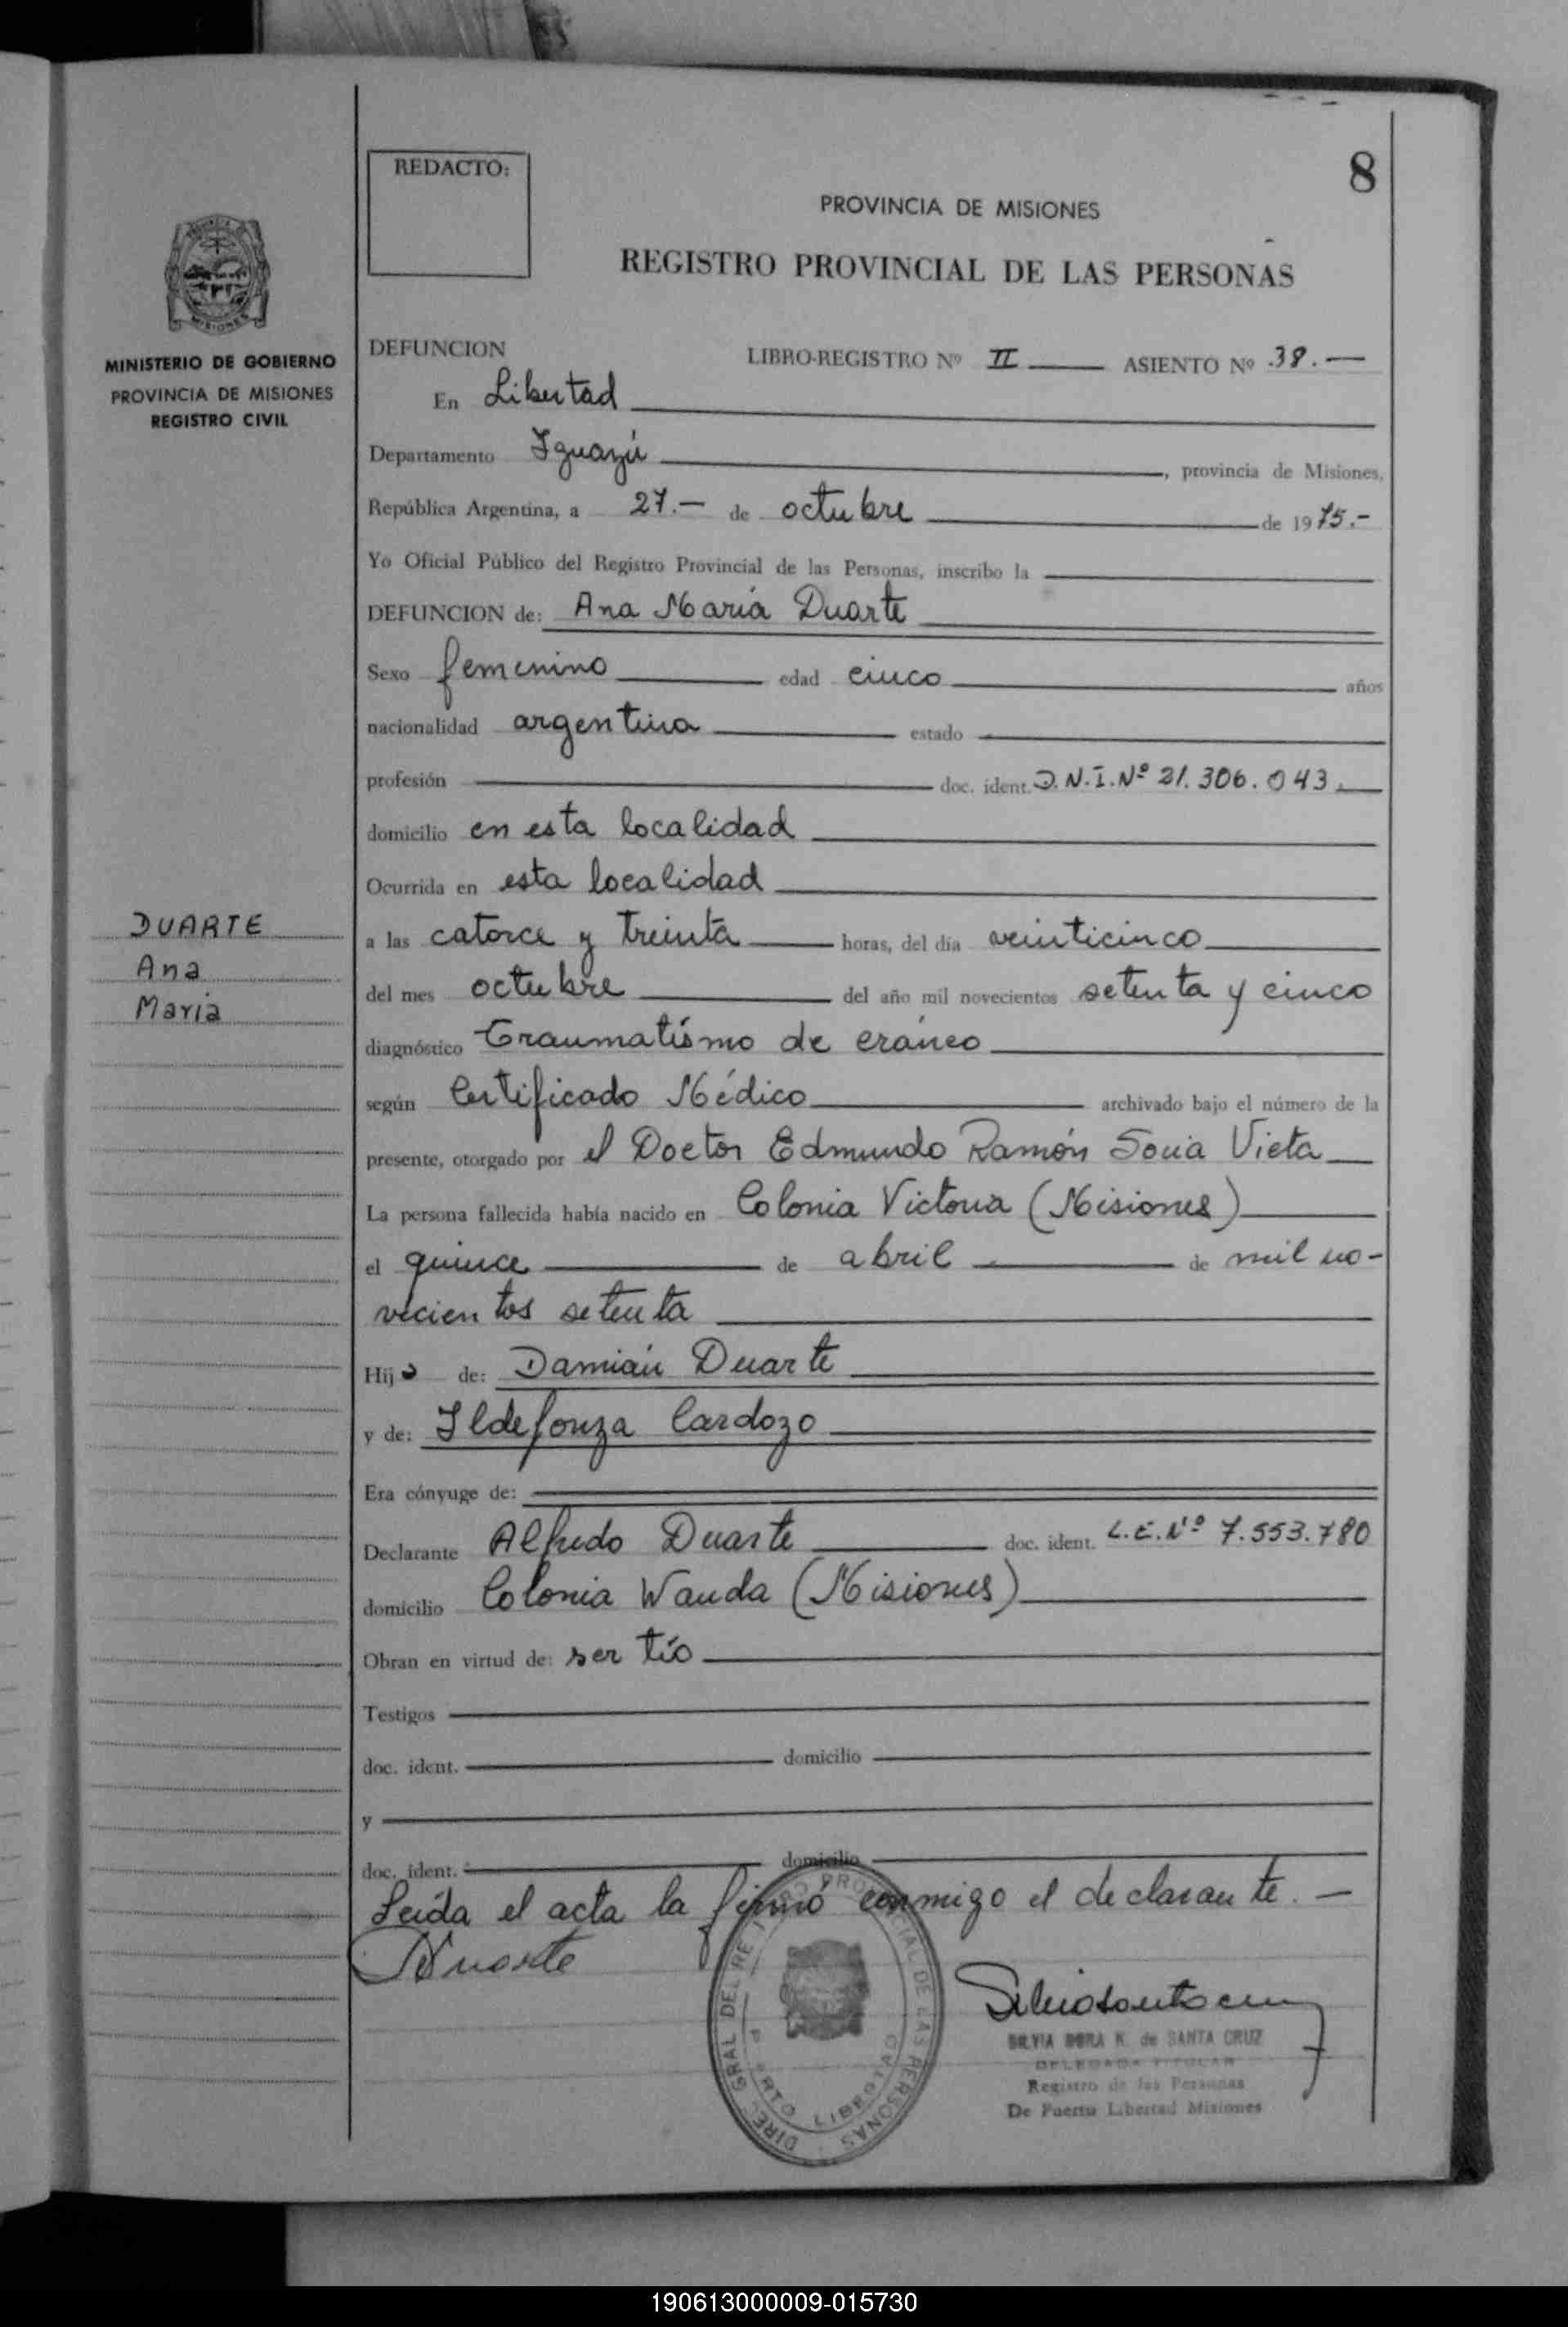 8
REDACTO:
PROVINCIA DE MISIONES
REGISTRO PROVINCIAL DE LAS PERSONAS
MISIONES
MINISTERIO DE GOBIERNO
PROVINCIA DE MISIONES
REGISTRO CIVIL
DEFUNCION LIBRO-REGISTRO Nº II ASIENTO Nº 38.—
En Libertad
Departamento Iguazú, provincia de Misiones,
República Argentina, a 27.— de octubre de 1975.-
Yo Oficial Público del Registro Provincial de las Personas, inscribo la
DEFUNCION de: Ana María Duarte
Sexo femenino edad cinco años
nacionalidad argentina estado
profesión doc. ident. D.N.I.Nº 21.306.043.
domicilio en esta localidad
Ocurrida en esta localidad
DUARTE
Ana
Maria
a las catorce y treinta horas, del día veinticinco
del mes octubre del año mil novecientos setenta y cinco
diagnóstico Traumatísmo de cráneo
según Certificado Médico archivado bajo el número de la
presente, otorgado por el Doctor Edmundo Ramón Soria Vieta
La persona fallecida había nacido en Colonia Victoria (Misiones)
el quince de abril de mil no-
vecientos setenta
Hija de: Damián Duarte
y de: Ildefonza Cardozo
Era cónyuge de:
Declarante Alfredo Duarte doc. ident. L.E.Nº 7.553.780
domicilio Colonia Wanda (Misiones)
Obran en virtud de: ser tío
Testigos
doc. ident. domicilio
y
doc. ident. domicilio
Leída el acta la firmó conmigo el declarante.—
DIRE. GRAL DEL REGISTRO PROVINCIAL DE LAS PERSONAS
PUERTO LIBERTAD
SILVIA DORA K. de SANTA CRUZ
DELEGADA TITULAR
Registro de las Personas
De Puerto Libertad Misiones
190613000009-015730